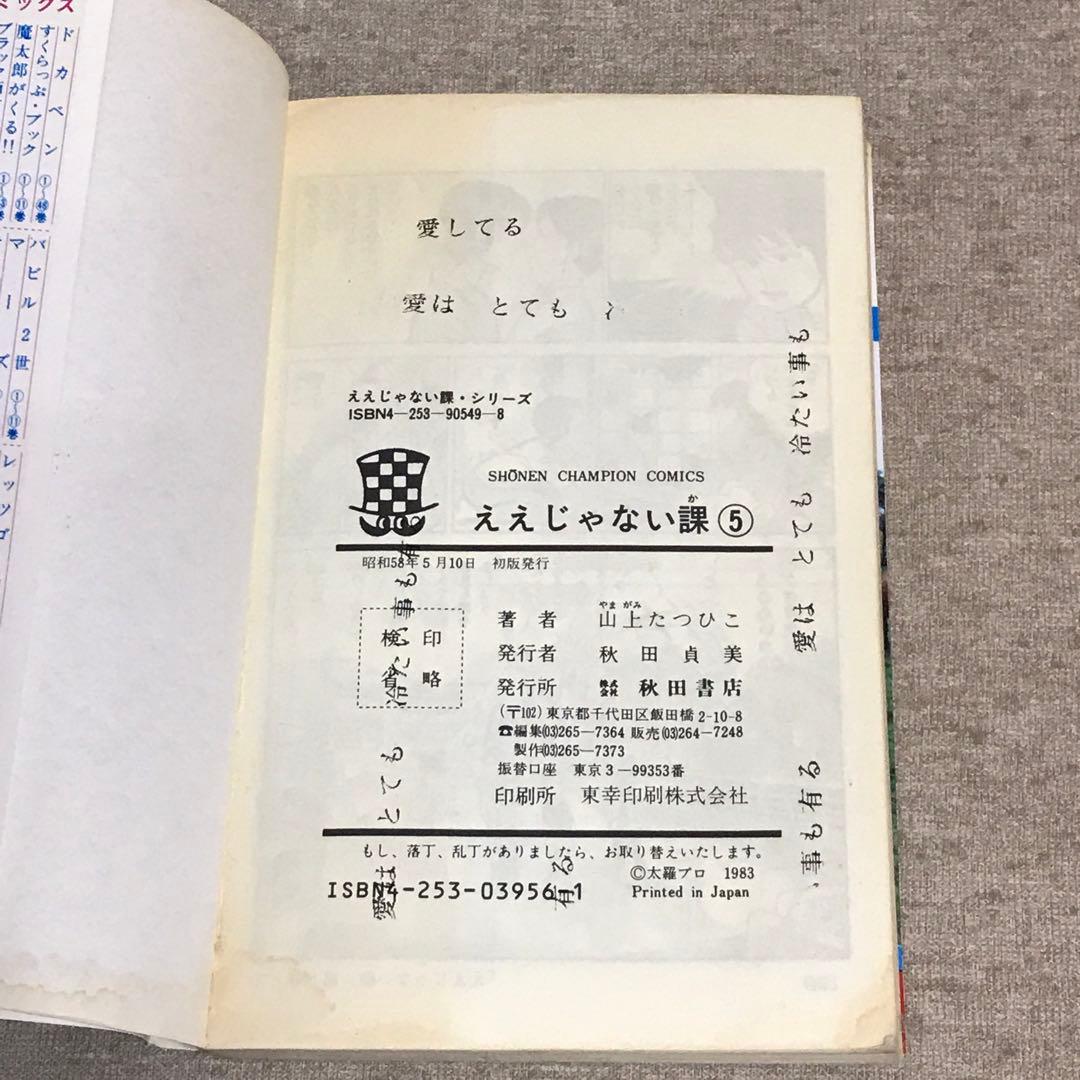 ミックス
ドカベン ①〜㊽巻
すくらっぷ・ブック ①〜⑪巻
魔太郎がくる!!
バビル2世 ①〜⑪巻
愛してる
愛は とても
ええじゃない課・シリーズ
ISBN4-253-90549-8
SHŌNEN CHAMPION COMICS
か
ええじゃない課⑤
昭和58年5月10日 初版発行
検印
省略
やま がみ
著者 山上たつひこ
発行者 秋田貞美
発行所 株式会社 秋田書店
(〒102)東京都千代田区飯田橋2-10-8
☎編集(03)265-7364 販売(03)264-7248
製作(03)265-7373
振替口座 東京3-99353番
印刷所 東幸印刷株式会社
もし、落丁、乱丁がありましたら、お取り替えいたします。
ISBN4-253-03956-1
©太羅プロ 1983
Printed in Japan
愛は とても 冷たい事も有
有る
愛は とても 冷たい事も
事も有る